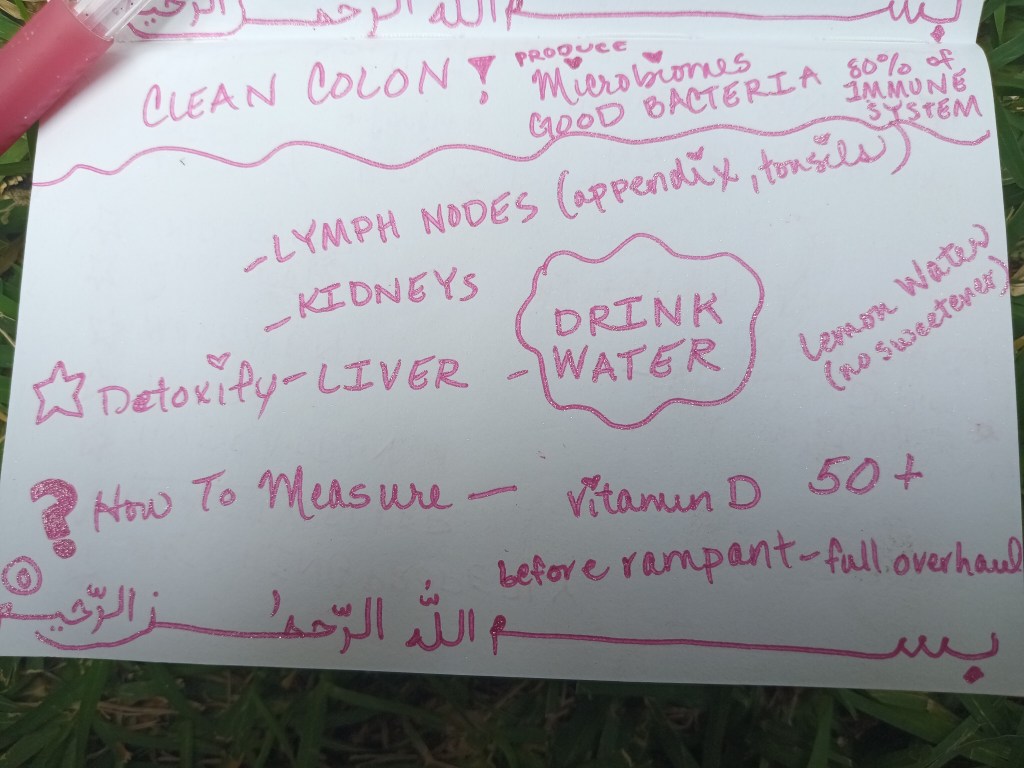 بسم الله الرحمن الرحيم
CLEAN COLON! PRODUCE Microbiomes GOOD BACTERIA 80% of IMMUNE SYSTEM
- LYMPH NODES (appendix, tonsils)
- KIDNEYS
Detoxify - LIVER - DRINK WATER
Lemon Water (no sweetener)
? How To Measure - vitamin D 50+
before rampant - full overhaul
بسم اللّه الرّحمٰن الرّحيم